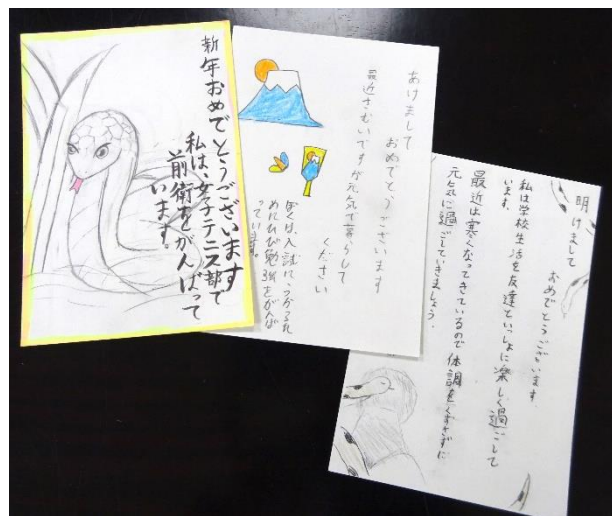 新年おめでとうございます
私は、女子テニス部で
前衛をがんばって
います。
あけまして
おめでとうございます
最近さむいですが元気で暮らして
ください
ぼくは、入試にうかるた
めにひび勉強をがんば
っています。
明けまして
おめでとうございます
私は学校生活を友達といっしょに楽しく過ごして
います。
最近は寒くなってきているので体調をくずさずに
元気に過ごしていきましょう。